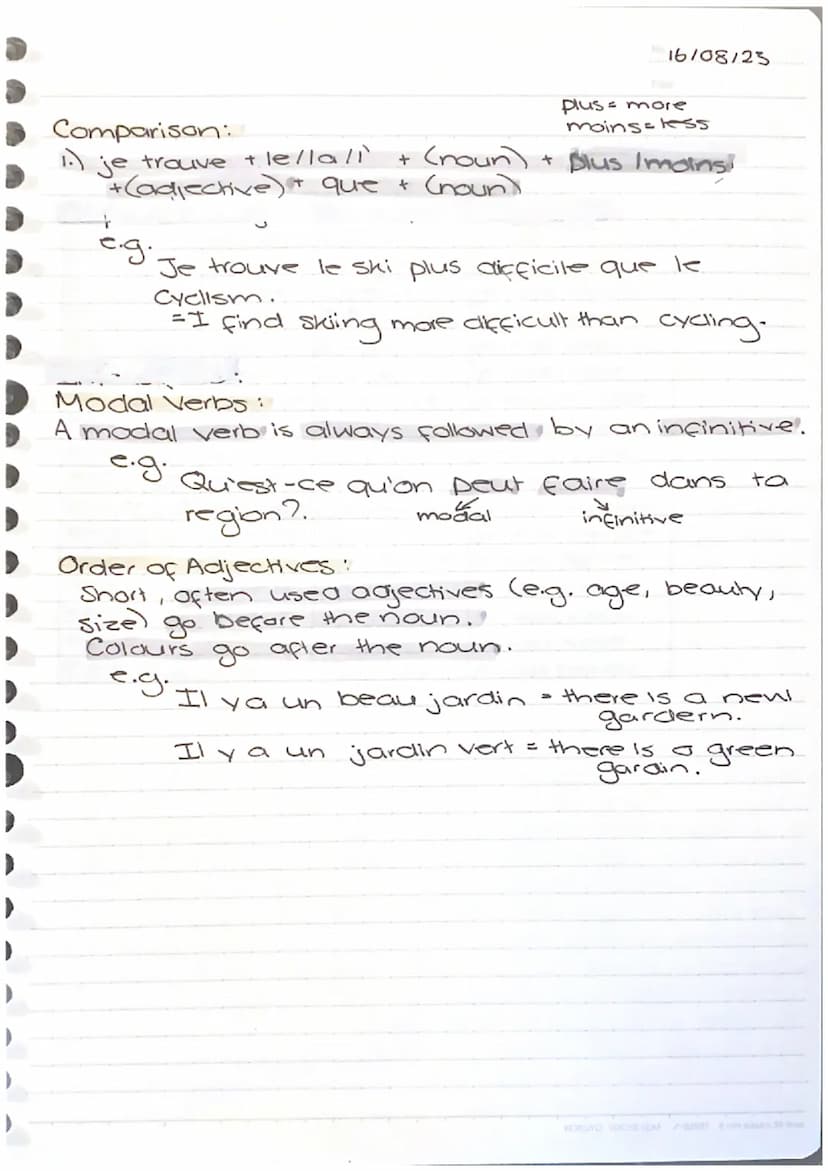 16/08/23
plus = more
moins = less
Comparison:
1.) je trouve + le/la/l' + (noun) + plus/moins
+(adjective) + que + (noun)
e.g.
Je trouve le ski plus difficile que le
cyclism.
= I find skiing more difficult than cycling.
Modal Verbs:
A modal verb is always followed by an infinitive.
e.g.
Qu'est-ce qu'on peut faire dans ta
region?.
modal infinitive
Order of Adjectives:
Short, often used adjectives (e.g. age, beauty,
size) go before the noun.
Colours go after the noun.
e.g.
Il y a un beau jardin = there is a new
gardern.
Il y a un jardin vert = there is a green
gardin.